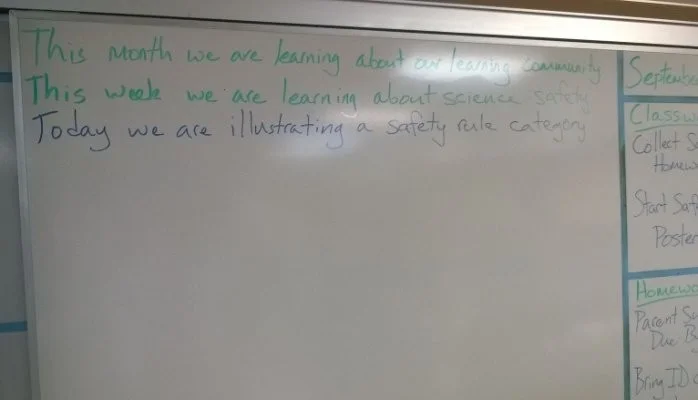 This month we are learning about our learning community
This week we are learning about science safety
Today we are illustrating a safety rule category
September
Classw
Collect S
Homew
Start Saf
Poster
Homewo
Parent Su
Due
Bring ID